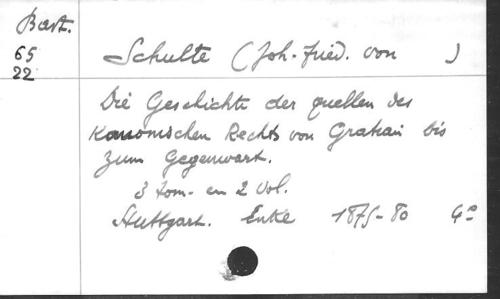 Bast.
65
22
Schulte (Joh-Fried. von )
Die Geschichte der quellen des
Kanonischen Rechts von Gratian bis
zum Gegenwart.
3 tom. en 2 vol.
Stuttgart. Enke 1875-80 4º